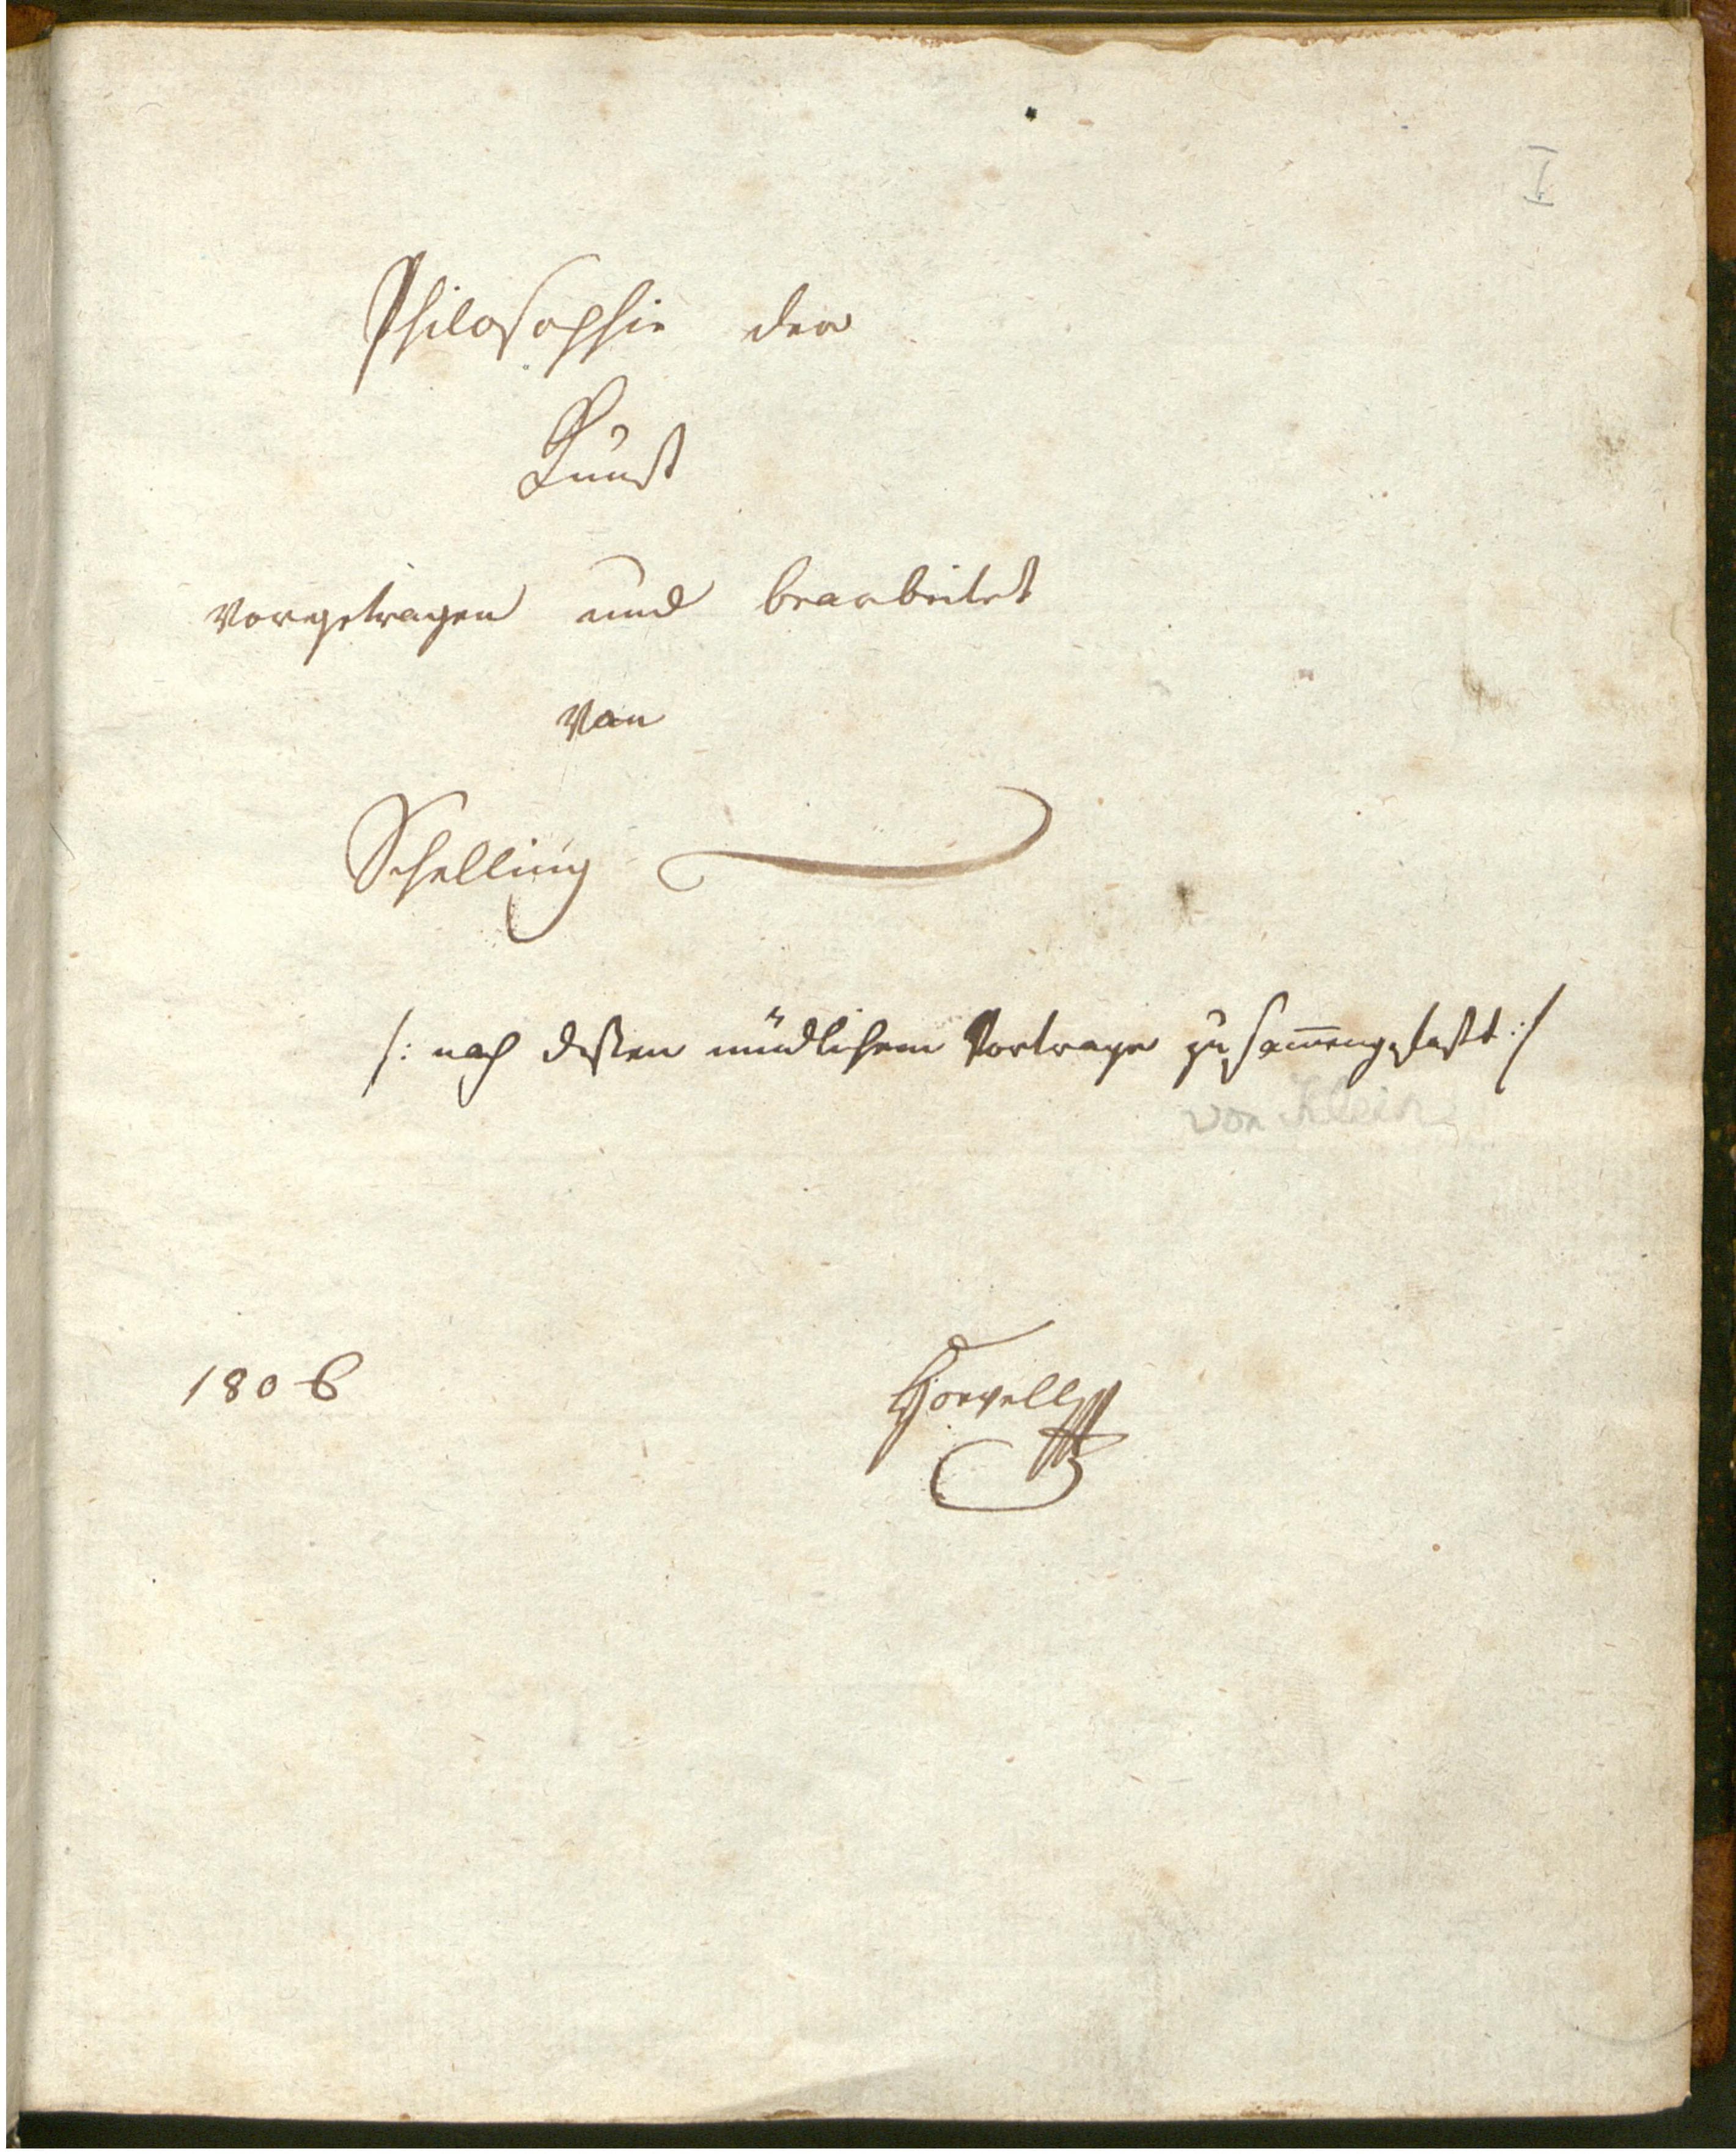 I
Philosophie der
Kunst
vorgetragen und bearbeitet
von
Schelling
/: nach deßen mündlichem Vortrage zusam̄engefaßt :/
von Klein
1806